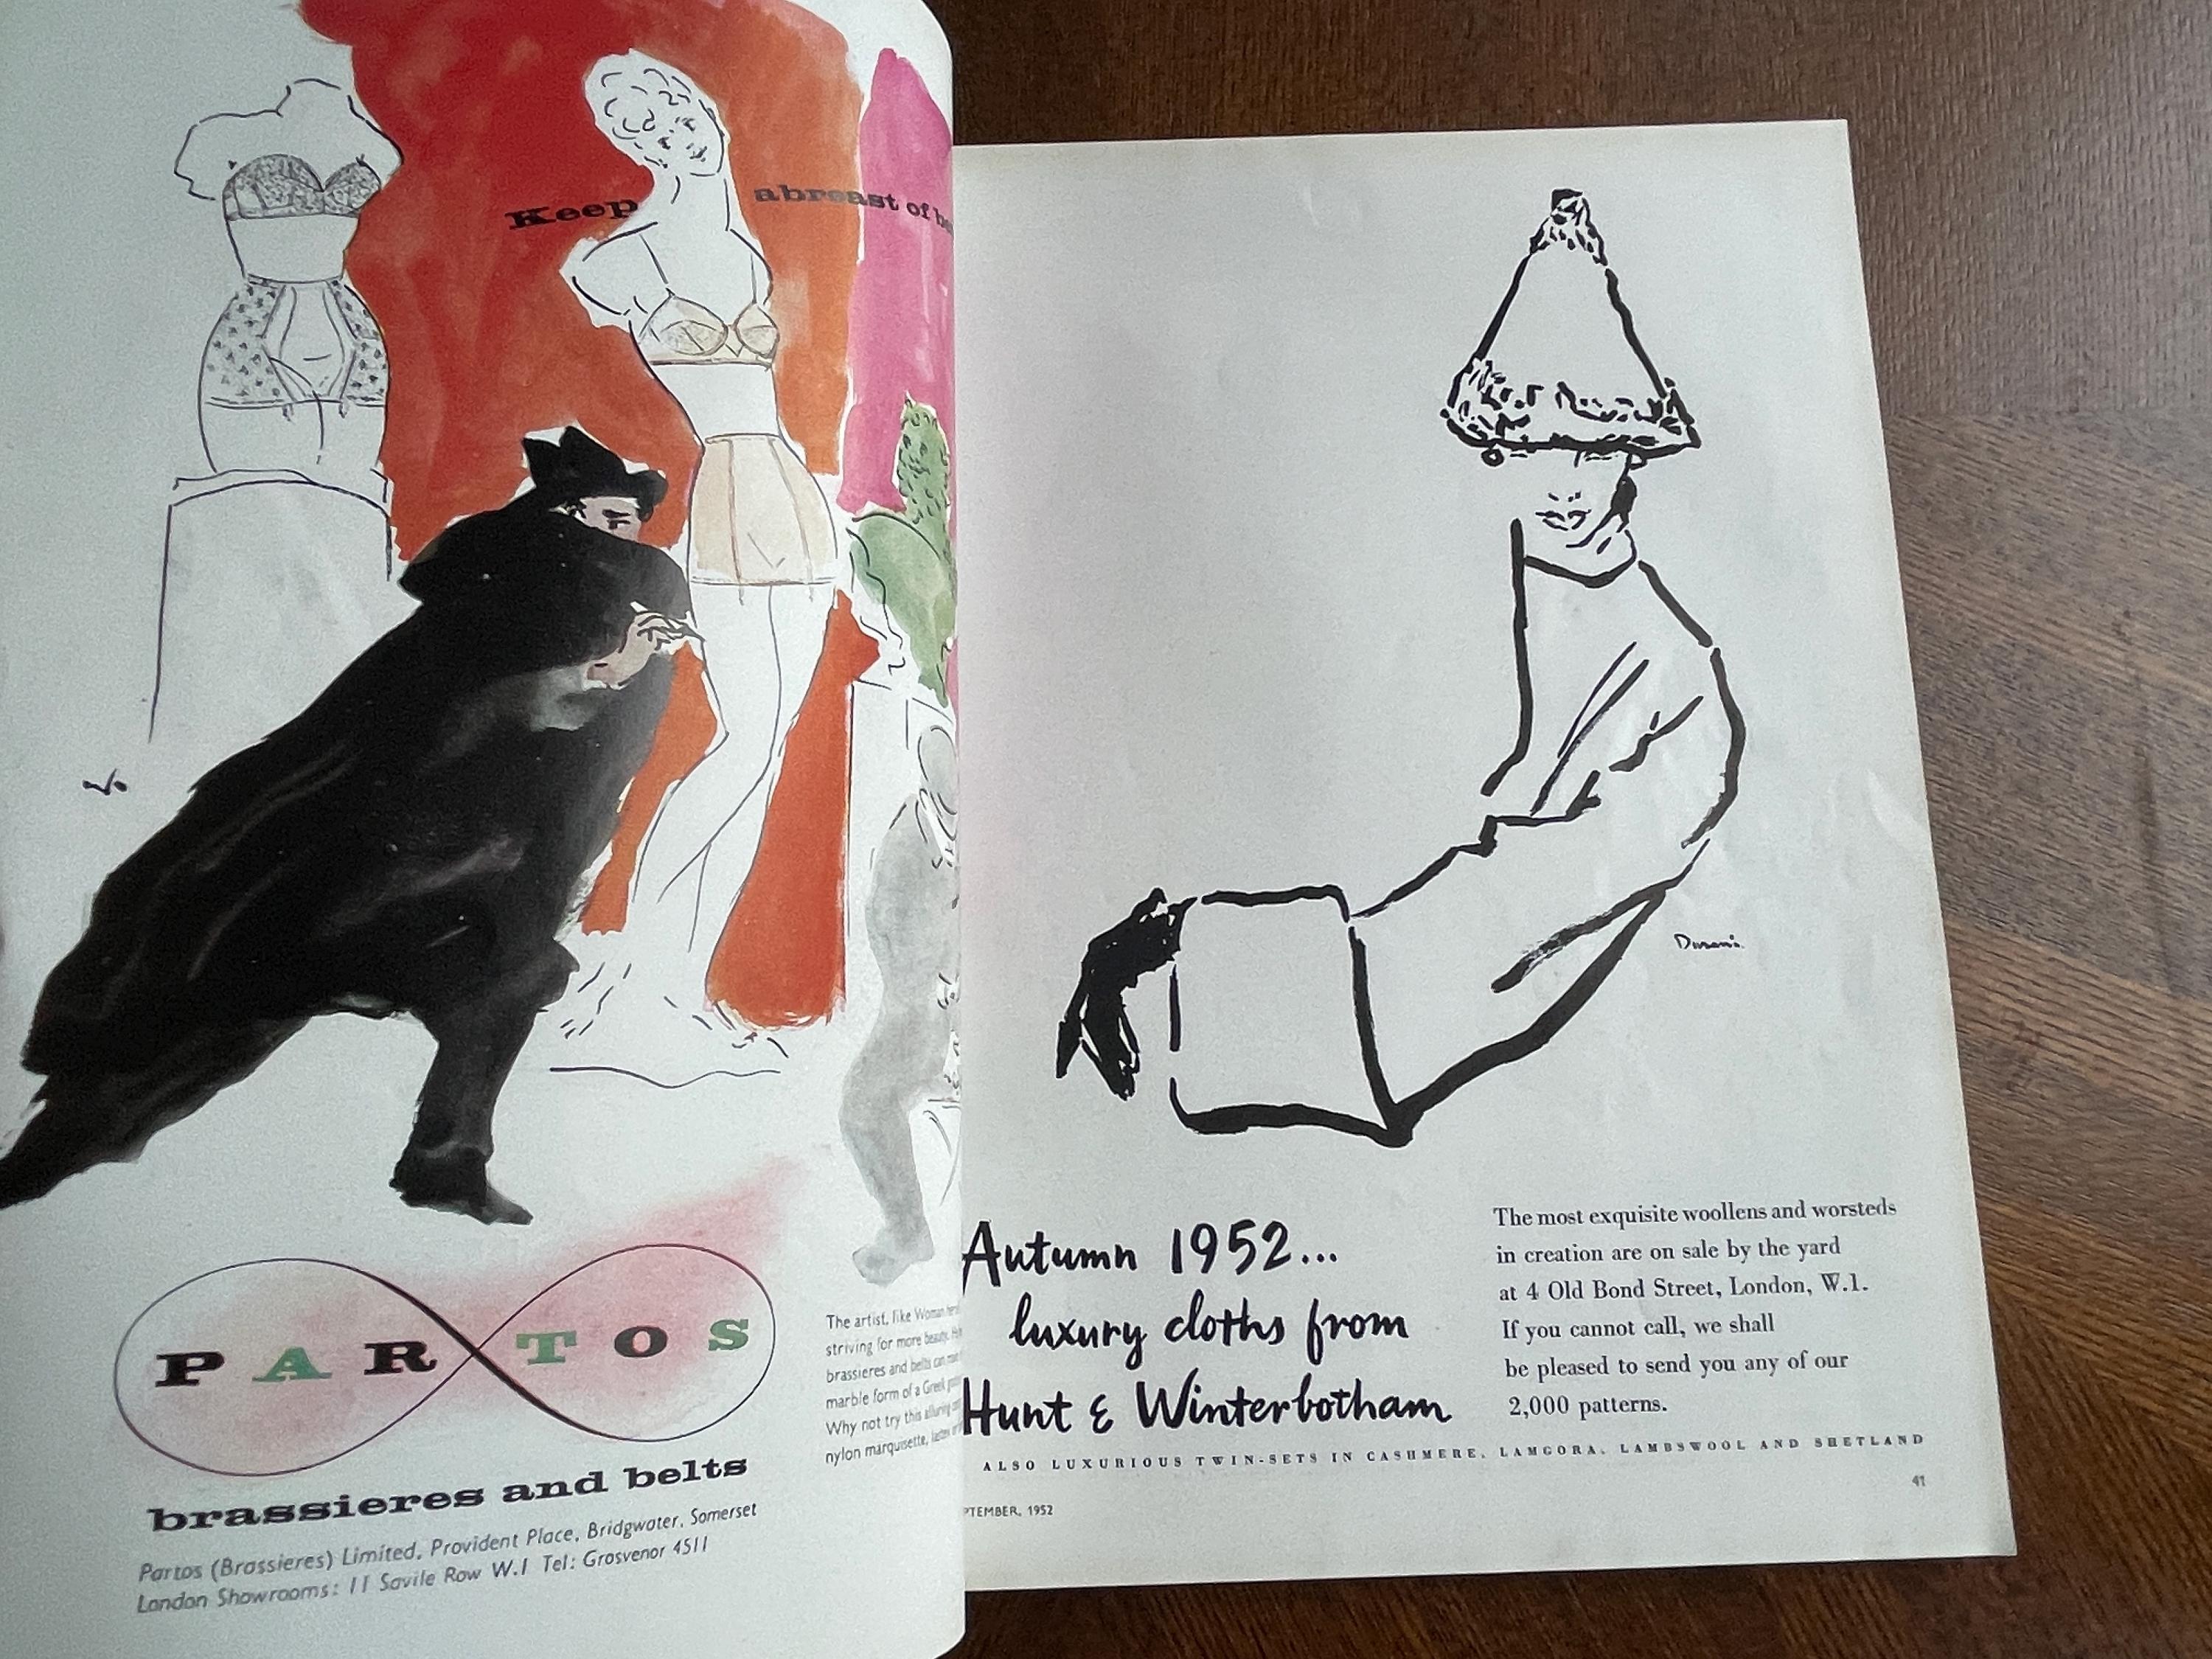 Keep abreast of
PARTOS
brassieres and belts
Partos (Brassieres) Limited, Provident Place, Bridgwater, Somerset
London Showrooms: 11 Savile Row W.1 Tel: Grosvenor 4511
The artist, like Woman
striving for more beauty.
brassieres and belts can
marble form of a Greek
Why not try this alluring
nylon marquisette,
Autumn 1952...
luxury cloths from
Hunt & Winterbotham
The most exquisite woollens and worsteds
in creation are on sale by the yard
at 4 Old Bond Street, London, W.1.
If you cannot call, we shall
be pleased to send you any of our
2,000 patterns.
ALSO LUXURIOUS TWIN-SETS IN CASHMERE, LAMGORA, LAMBSWOOL AND SHETLAND
41
PTEMBER, 1952